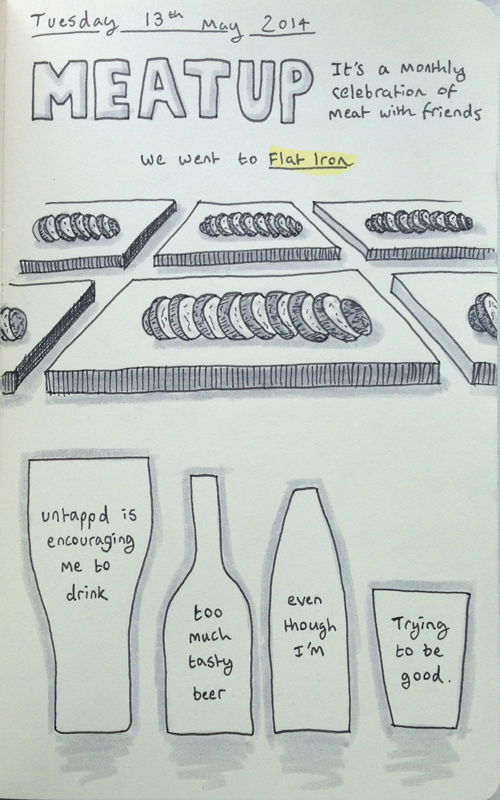 Tuesday 13th May 2014
MEATUP
It's a monthly
celebration of
meat with friends
we went to Flat Iron
untappd is
encouraging
me to
drink
too
much
tasty
beer
even
though
I'm
Trying
to be
good.